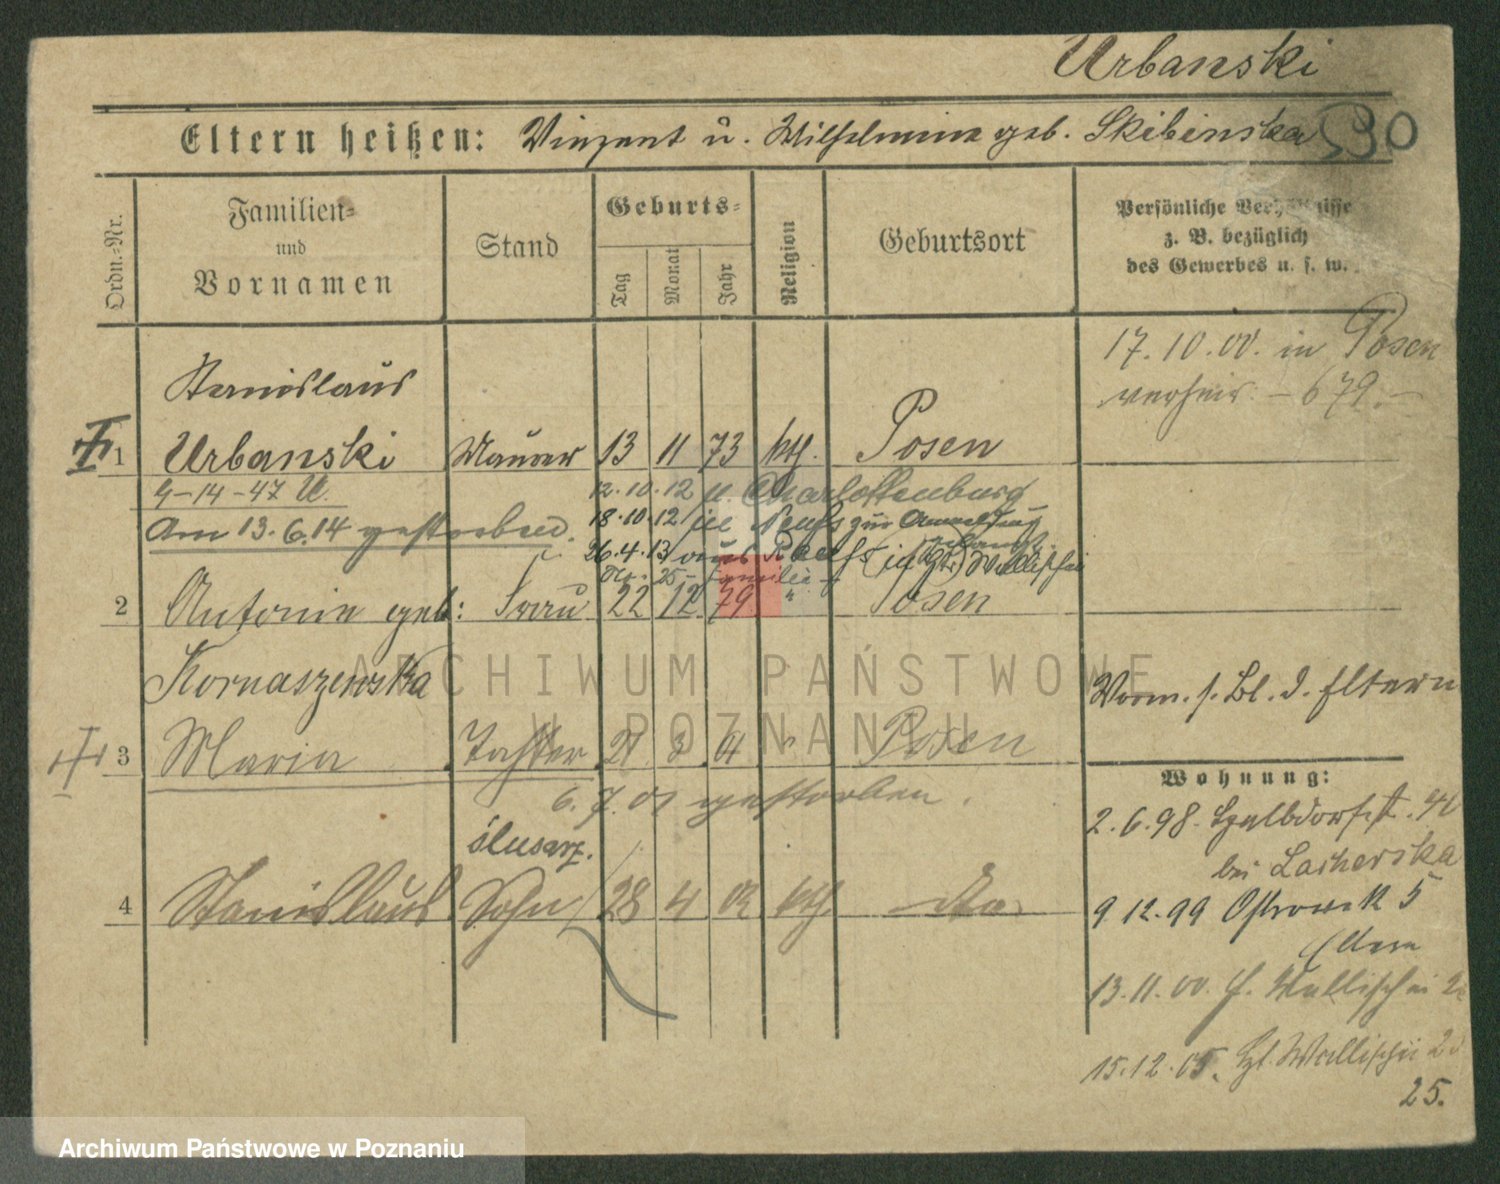 Urbanski
Eltern heißen: Vinzent u. Wilhelmine geb. Skibinska
30
Ordn.-Nr.
Familien-
und
Vornamen
Stand
Geburts-
Tag
Monat
Jahr
Religion
Geburtsort
Persönliche Verhältnisse
z. B. bezüglich
des Gewerbes u. s. w.
17.10.00. in Posen
verheir. - 679.-
Stanislaus
1 Urbanski Maurer 13 11 73 kth. Posen
4-14-47 U.
12.10.12 n. Charlottenburg
Am 13.6.14 gestorben.
18.10.12 zur Anmeldung
26.4.13 aus Wallischei
25 Familie
2 Antonie geb: Frau 22 12 79 " Posen
Kornaszewska
Vorm. s. Bl. d. Eltern
3 Maria Tochter 21 3 01 " Posen
6.7.01 gestorben.
Wohnung:
2.6.98.
bei Lacherska
ślusarz.
4 Stanislaus Sohn 28 4 02 kth. do.
9.12.99 Ostrowek 5
Eltern
13.11.00. Wallischei
15.12.05. Wallischei
25.
ARCHIWUM PAŃSTWOWE
W POZNANIU
Archiwum Państwowe w Poznaniu